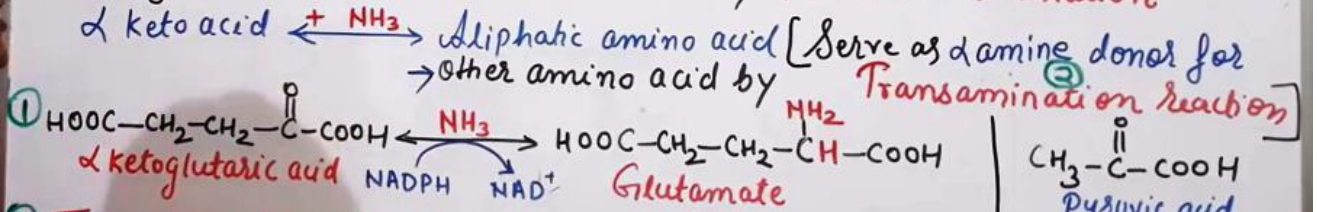 α keto acid + NH3 ⟷ Aliphatic amino acid [Serve as α amine donor for
→ Other amino acid by Transamination reaction]
① HOOC–CH2–CH2–C–COOH NH3 ⟷ HOOC–CH2–CH2–CH–COOH
O
NH2
α ketoglutaric acid NADPH NAD+ Glutamate
②
O
CH3–C–COOH
Pyruvic acid